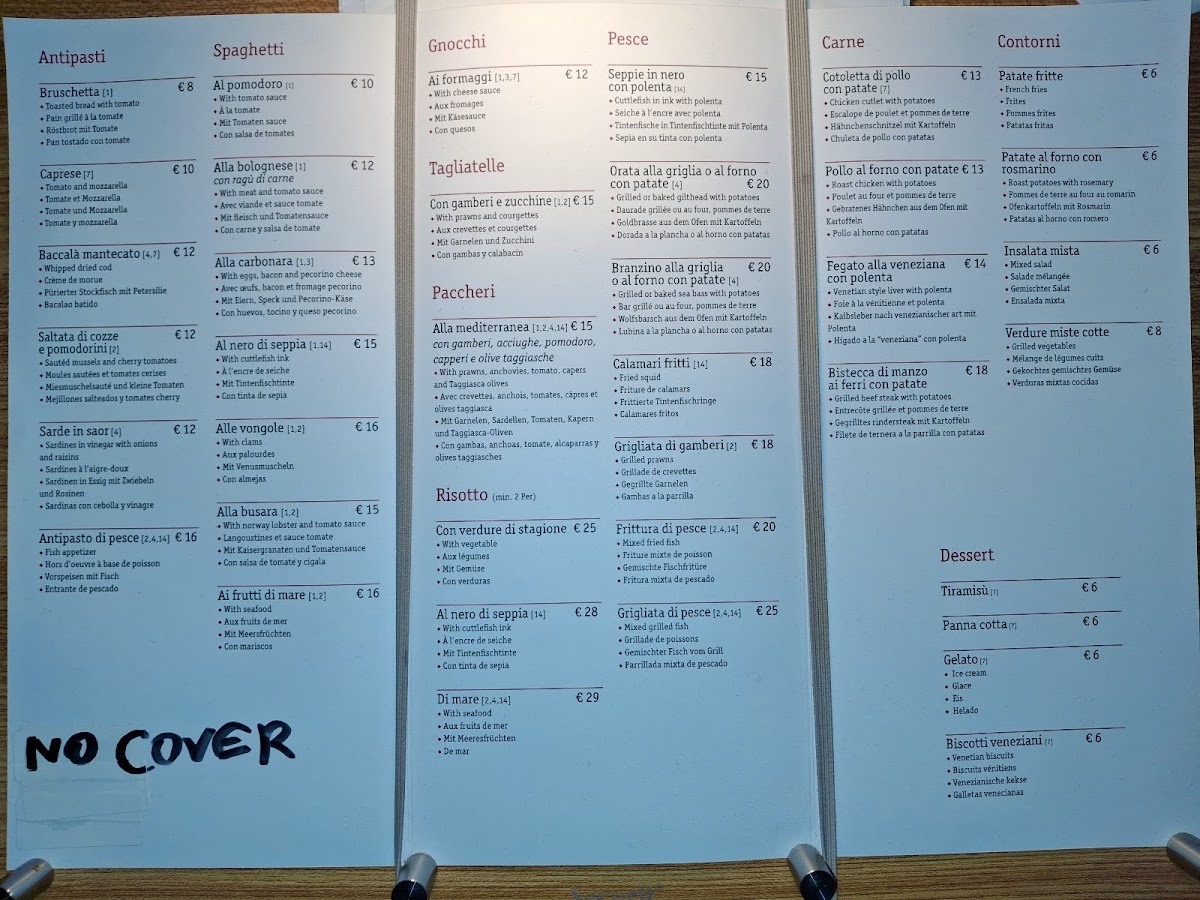 Antipasti
Bruschetta [1] € 8
• Toasted bread with tomato
• Pain grillé à la tomate
• Röstbrot mit Tomate
• Pan tostado con tomate
Caprese [7] € 10
• Tomato and mozzarella
• Tomate et Mozzarella
• Tomate und Mozzarella
• Tomate y mozzarella
Baccalà mantecato [4,7] € 12
• Whipped dried cod
• Crème de morue
• Pürierter Stockfisch mit Petersilie
• Bacalao batido
Saltata di cozze
e pomodorini [2] € 12
• Sautéd mussels and cherry tomatoes
• Moules sautées et tomates cerises
• Miesmuschelsauté und kleine Tomaten
• Mejillones salteados y tomates cherry
Sarde in saor [4] € 12
• Sardines in vinegar with onions
and raisins
• Sardines à l'aigre-doux
• Sardinen in Essig mit Zwiebeln
und Rosinen
• Sardinas con cebolla y vinagre
Antipasto di pesce [2,4,14] € 16
• Fish appetizer
• Hors d'oeuvre à base de poisson
• Vorspeisen mit Fisch
• Entrante de pescado
NO COVER
Spaghetti
Al pomodoro [1] € 10
• With tomato sauce
• À la tomate
• Mit Tomaten sauce
• Con salsa de tomates
Alla bolognese [1] € 12
con ragù di carne
• With meat and tomato sauce
• Avec viande et sauce tomate
• Mit fleisch und Tomatensauce
• Con carne y salsa de tomate
Alla carbonara [1,3] € 13
• With eggs, bacon and pecorino cheese
• Avec œufs, bacon et fromage pecorino
• Mit Eiern, Speck und Pecorino-Käse
• Con huevos, tocino y queso pecorino
Al nero di seppia [1,14] € 15
• With cuttlefish ink
• À l'encre de seiche
• Mit Tintenfischtinte
• Con tinta de sepia
Alle vongole [1,2] € 16
• With clams
• Aux palourdes
• Mit Venusmuscheln
• Con almejas
Alla busara [1,2] € 15
• With norway lobster and tomato sauce
• Langoustines et sauce tomate
• Mit Kaisergranaten und Tomatensauce
• Con salsa de tomate y cigala
Ai frutti di mare [1,2] € 16
• With seafood
• Aux fruits de mer
• Mit Meersfrüchten
• Con mariscos
Gnocchi
Ai formaggi [1,3,7] € 12
• With cheese sauce
• Aux fromages
• Mit Käsesauce
• Con quesos
Tagliatelle
Con gamberi e zucchine [1,2] € 15
• With prawns and courgettes
• Aux crevettes et courgettes
• Mit Garnelen und Zucchini
• Con gambas y calabacín
Paccheri
Alla mediterranea [1,2,4,14] € 15
con gamberi, acciughe, pomodoro,
capperi e olive taggiasche
• With prawns, anchovies, tomato, capers
and Taggiasca olives
• Avec crevettes, anchois, tomates, câpres et
olives taggiasca
• Mit Garnelen, Sardellen, Tomaten, Kapern
und Taggiasca-Oliven
• Con gambas, anchoas, tomate, alcaparras y
olives taggiasches
Risotto (min. 2 Per)
Con verdure di stagione € 25
• With vegetable
• Aux légumes
• Mit Gemüse
• Con verduras
Al nero di seppia [14] € 28
• With cuttlefish ink
• À l'encre de seiche
• Mit Tintenfischtinte
• Con tinta de sepia
Di mare [2,4,14] € 29
• With seafood
• Aux fruits de mer
• Mit Meeresfrüchten
• De mar
Pesce
Seppie in nero
con polenta [14] € 15
• Cuttlefish in ink with polenta
• Seiche à l'encre avec polenta
• Tintenfische in Tintenfischtinte mit Polenta
• Sepia en su tinta con polenta
Orata alla griglia o al forno
con patate [4] € 20
• Grilled or baked gilthead with potatoes
• Daurade grillée ou au four, pommes de terre
• Goldbrasse aus dem Ofen mit Kartoffeln
• Dorada a la plancha o al horno con patatas
Branzino alla griglia
o al forno con patate [4] € 20
• Grilled or baked sea bass with potatoes
• Bar grillé ou au four, pommes de terre
• Wolfsbarsch aus dem Ofen mit Kartoffeln
• Lubina a la plancha o al horno con patatas
Calamari fritti [14] € 18
• Fried squid
• Friture de calamars
• Frittierte Tintenfischringe
• Calamares fritos
Grigliata di gamberi [2] € 18
• Grilled prawns
• Grillade de crevettes
• Gegrillte Garnelen
• Gambas a la parrilla
Frittura di pesce [2,4,14] € 20
• Mixed fried fish
• Friture mixte de poisson
• Gemischte Fischfritüre
• Fritura mixta de pescado
Grigliata di pesce [2,4,14] € 25
• Mixed grilled fish
• Grillade de poissons
• Gemischter Fisch vom Grill
• Parrillada mixta de pescado
Carne
Cotoletta di pollo
con patate [7] € 13
• Chicken cutlet with potatoes
• Escalope de poulet et pommes de terre
• Hähnchenschnitzel mit Kartoffeln
• Chuleta de pollo con patatas
Pollo al forno con patate € 13
• Roast chicken with potatoes
• Poulet au four et pommes de terre
• Gebratenes Hähnchen aus dem Ofen mit
Kartoffeln
• Pollo al horno con patatas
Fegato alla veneziana
con polenta € 14
• Venetian style liver with polenta
• Foie à la vénitienne et polenta
• Kalbsleber nach venezianischer art mit
Polenta
• Hígado a la "veneziana" con polenta
Bistecca di manzo
ai ferri con patate € 18
• Grilled beef steak with potatoes
• Entrecôte grillée et pommes de terre
• Gegrilltes rindersteak mit Kartoffeln
• Filete de ternera a la parrilla con patatas
Contorni
Patate fritte € 6
• French fries
• Frites
• Pommes frites
• Patatas fritas
Patate al forno con
rosmarino € 6
• Roast potatoes with rosemary
• Pommes de terre au four au romarin
• Ofenkartoffeln mit Rosmarin
• Patatas al horno con romero
Insalata mista € 6
• Mixed salad
• Salade mélangée
• Gemischter Salat
• Ensalada mixta
Verdure miste cotte € 8
• Grilled vegetables
• Mélange de légumes cuits
• Gekochtes gemischtes Gemüse
• Verduras mixtas cocidas
Dessert
Tiramisù [7] € 6
Panna cotta [7] € 6
Gelato [7] € 6
• Ice cream
• Glace
• Eis
• Helado
Biscotti veneziani [7] € 6
• Venetian biscuits
• Biscuits vénitiens
• Venezianische kekse
• Galletas venecianas